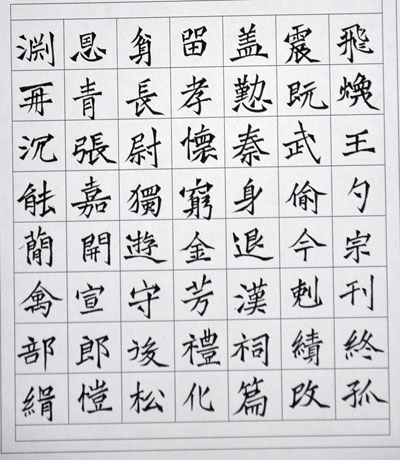 淵恩貧留盖震飛
再青長孝懃既煥
沉張尉懷秦武王
能嘉獨窮身偷勺
蕳開遊金退今宗
禽宣守芳漢剋刊
部郎後禮祠績終
絹愷松化篇改孤